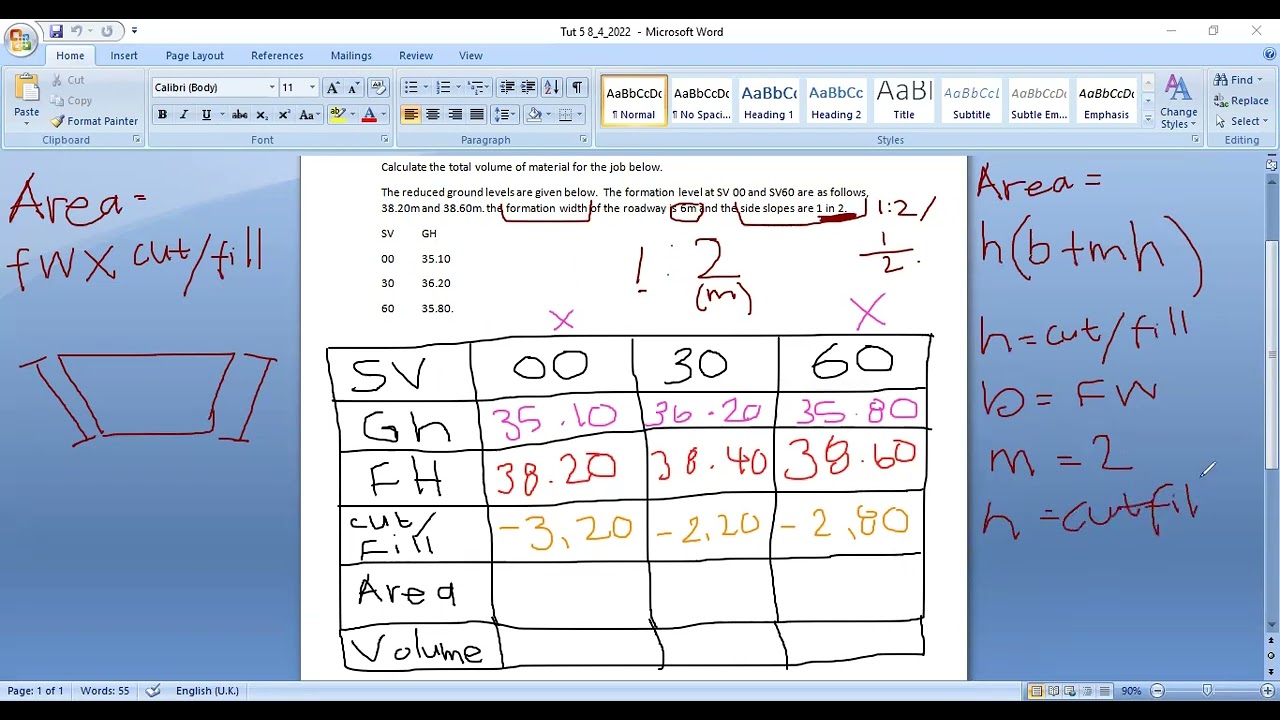 Tut 5 8_4_2022 - Microsoft Word
Home Insert Page Layout References Mailings Review View
Paste
Cut
Copy
Format Painter
Clipboard
Calibri (Body) 11
Font
Paragraph
AaBbCcDc AaBbCcDc AaBbCc AaBbCc AaBl AaBbCcL AaBbCcDc AaBbCcDc
¶ Normal ¶ No Spaci... Heading 1 Heading 2 Title Subtitle Subtle Em... Emphasis
Change Styles
Styles
Find
Replace
Select
Editing
Calculate the total volume of material for the job below.
The reduced ground levels are given below. The formation level at SV 00 and SV60 are as follows,
38.20m and 38.60m. the formation width of the roadway is 6m and the side slopes are 1 in 2.
SV GH
00 35.10
30 36.20
60 35.80.
1:2/
1/2
1 : 2
(m)
Area =
fW X cut/fill
Area =
h(b+mh)
h=cut/fill
b= FW
m = 2
h =cutfil
X X
SV 00 30 60
Gh 35.10 36.20 35.80
FH 38.20 38.40 38.60
cut/Fill -3,20 -2,20 -2,80
Area
Volume
Page: 1 of 1 Words: 55 English (U.K.) 90%